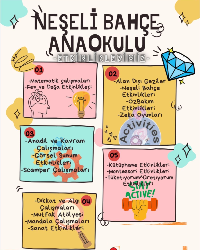 NEŞELİ BAHÇE
ANAOKULU
ETKİNLİKLERİMİZ
01
Matematik Çalışmaları
Fen ve Doğa Etkinlikleri
02
-Alan Dışı Geziler
-Neşeli Bahçe
Etkinlikleri
-Özbakım
Etkinlikleri
-Zeka Oyunları
Activities
03
-Anadil ve Kavram
Çalışmaları
-Görsel Sunum
Etkinlikleri
-Scamper Çalışmaları
05
-Kütüphane Etkinlikleri
-Montessori Etkinlikleri
STAY
ACTIVE!
04
-Dikkat ve Algı
Çalışmaları
-Mutfak Atölyesi
-Mandala Çalışmaları
-Sanat Etkinlikleri